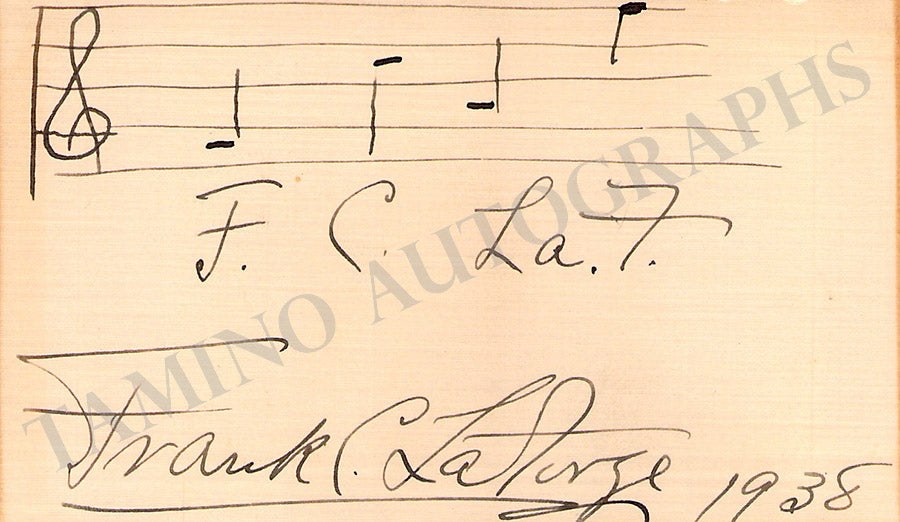 F. C. La. F.
Frank C. LaForge 1938
TAMINO AUTOGRAPHS